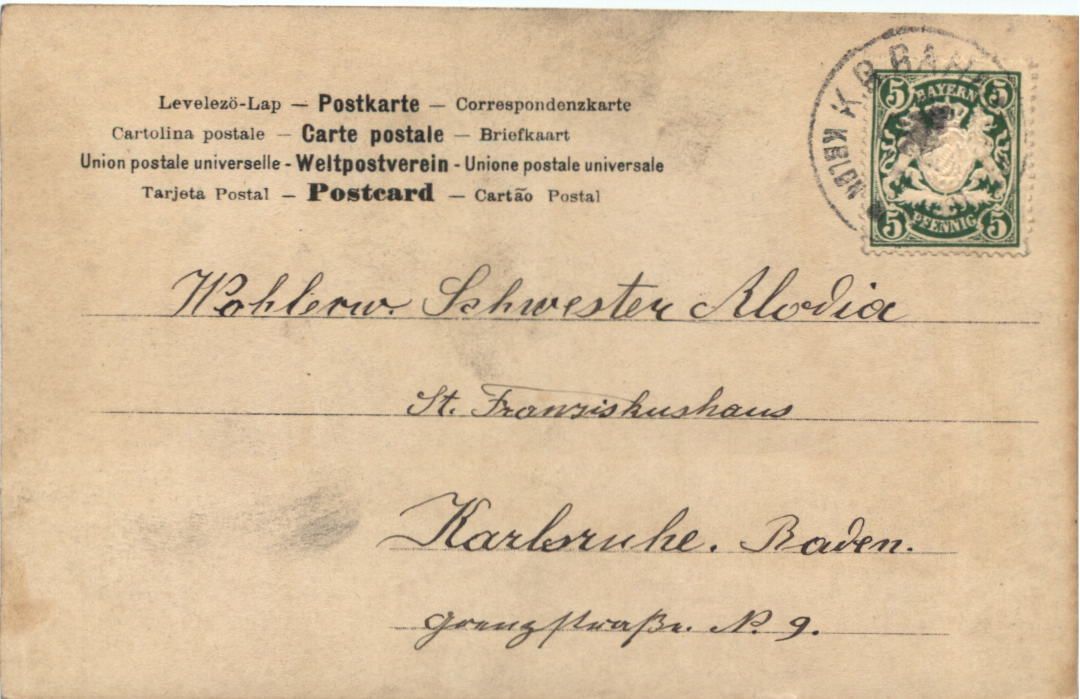 Levelezö-Lap — Postkarte — Correspondenzkarte
Cartolina postale — Carte postale — Briefkaart
Union postale universelle - Weltpostverein - Unione postale universale
Tarjeta Postal — Postcard — Cartão Postal
K.B.BAH
5 BAYERN 5
5 PFENNIG 5
Wohlerw. Schwester Alodia
St. Franziskushaus
Karlsruhe. Baden.
Grenzstraße. N. 9.